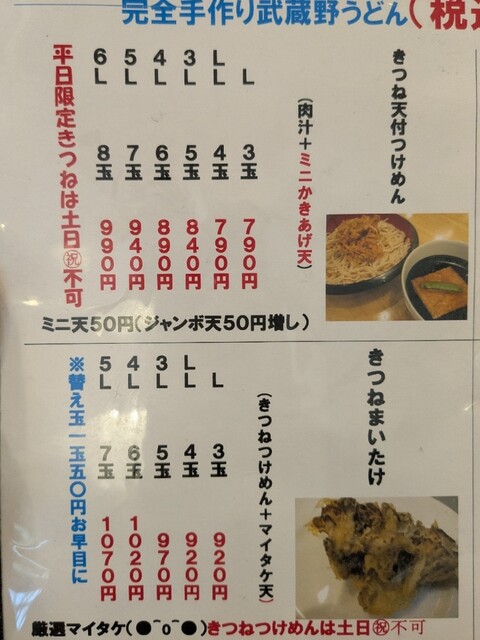 完全手作り武蔵野うどん(税込
きつね天付つけめん
(肉汁+ミニかきあげ天)
L 3玉 790円
LL 4玉 790円
3L 5玉 840円
4L 6玉 890円
5L 7玉 940円
6L 8玉 990円
平日限定きつねは土日㊗不可
ミニ天50円(ジャンボ天50円増し)
きつねまいたけ
(きつねつけめん+マイタケ天)
L 3玉 920円
LL 4玉 920円
3L 5玉 970円
4L 6玉 1020円
5L 7玉 1070円
※替え玉一玉五〇円お早目に
厳選マイタケ(●⌒o⌒●)きつねつけめんは土日㊗不可